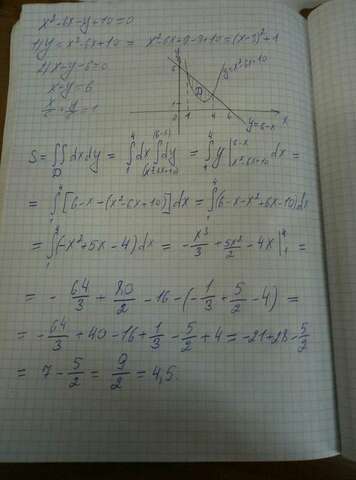 x² - 6x - y + 10 = 0
1) y = x² - 6x + 10 = x² - 6x + 9 - 9 + 10 = (x-3)² + 1
2) x + y - 6 = 0
x + y = 6
x/6 + y/6 = 1
y
6
y = x² - 6x + 10
D
1
1 4 6 x
y = 6 - x
S = ∬_D dxdy = ∫_1^4 dx ∫_{(x²-6x+10)}^{(6-x)} dy = ∫_1^4 y |_{x²-6x+10}^{6-x} dx =
= ∫_1^4 [6 - x - (x² - 6x + 10)] dx = ∫_1^4 (6 - x - x² + 6x - 10) dx
= ∫_1^4 (-x² + 5x - 4) dx = -x³/3 + 5x²/2 - 4x |_1^4 =
= - 64/3 + 80/2 - 16 - (-1/3 + 5/2 - 4) =
= - 64/3 + 40 - 16 + 1/3 - 5/2 + 4 = -21 + 28 - 5/2
= 7 - 5/2 = 9/2 = 4,5